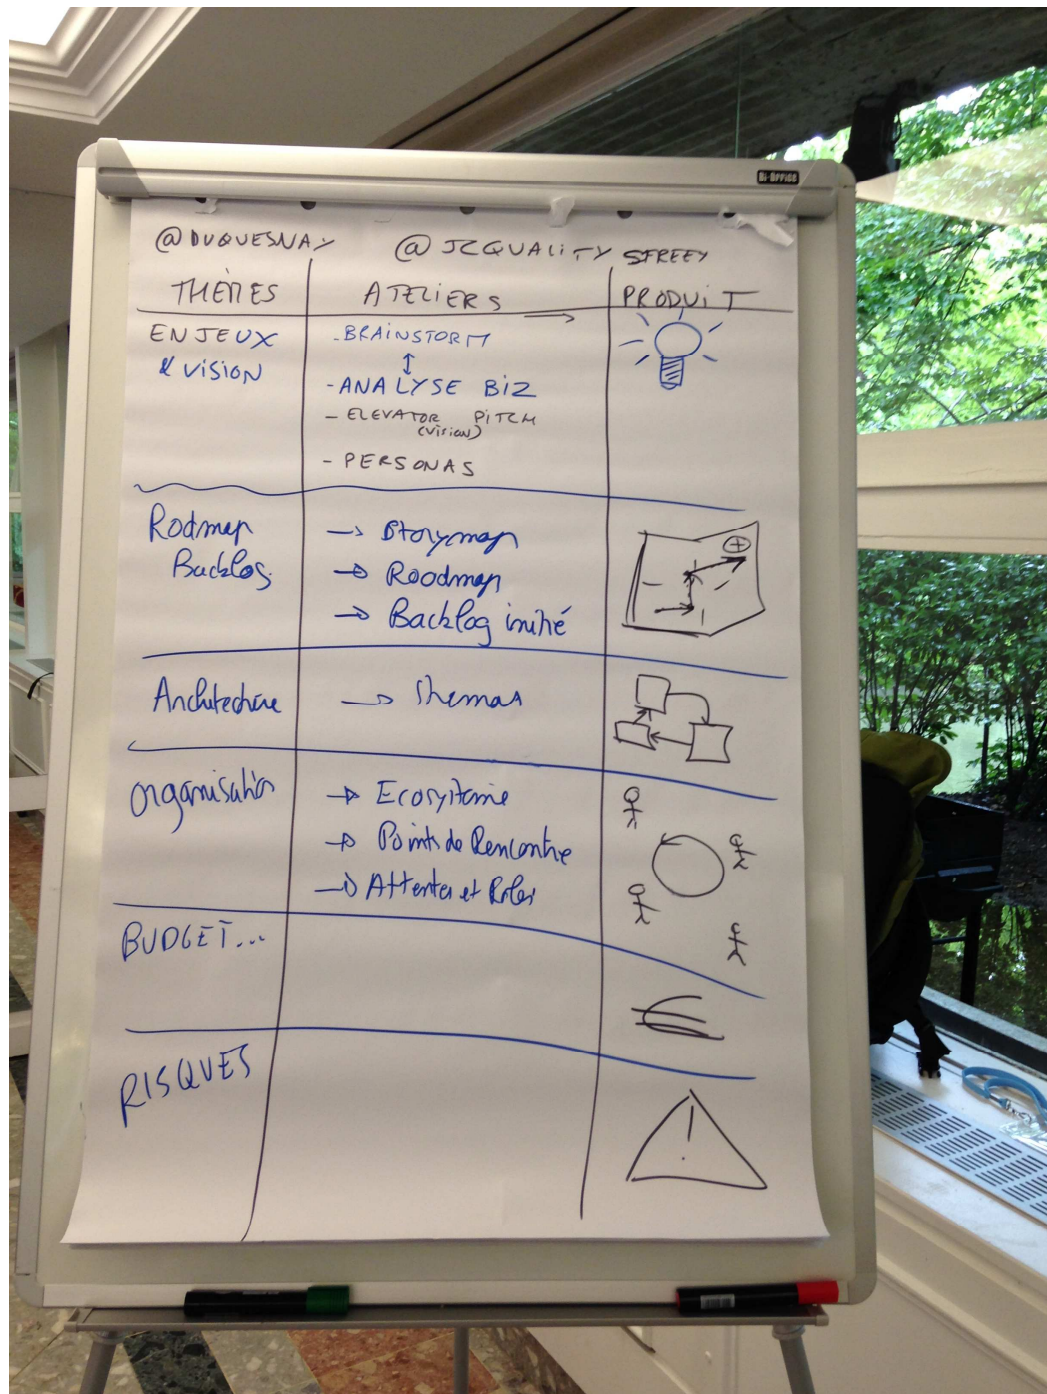 Bi-Office
@DUQUESNAY @JCQUALITYSTREET
THÈMES ATELIERS PRODUIT
ENJEUX
& VISION
- BRAINSTORM
- ANALYSE BIZ
- ELEVATOR PITCH
(vision)
- PERSONAS
Rodmap
Backlog
→ Storymap
→ Roodmap
→ Backlog initié
Architecture → Shemas
Organisation
→ Ecosystème
→ Points de Rencontre
→ Attentes et Roles
BUDGET...
€
RISQUES
!